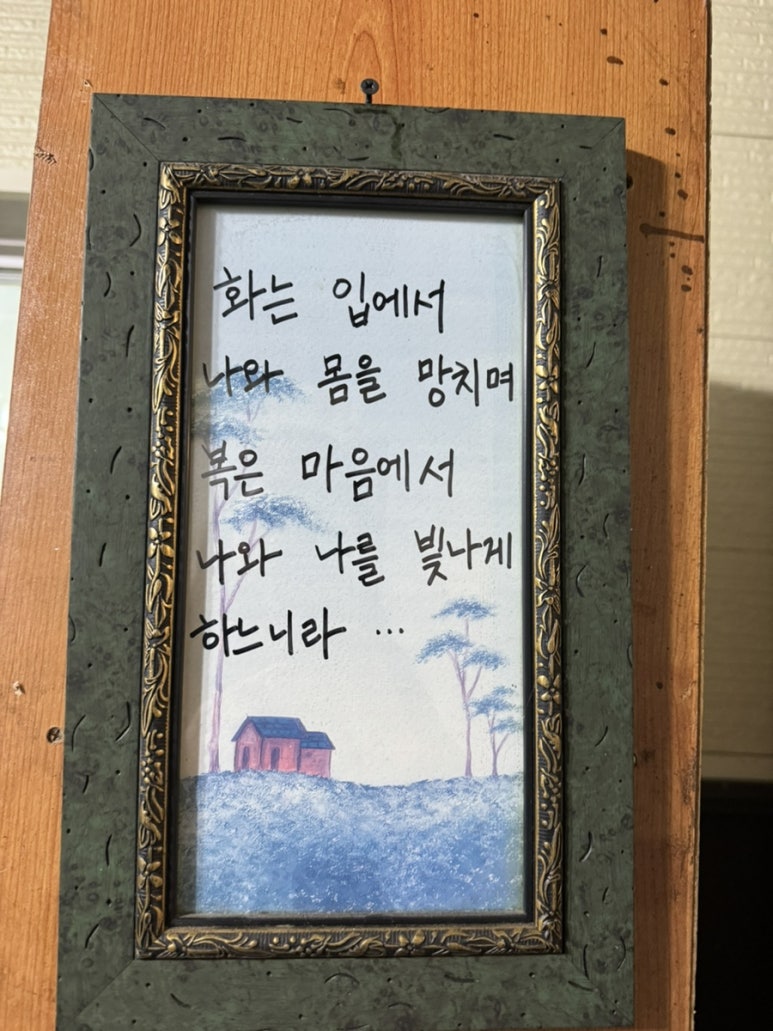 화는 입에서
나와 몸을 망치며
복은 마음에서
나와 나를 빛나게
하느니라 ...